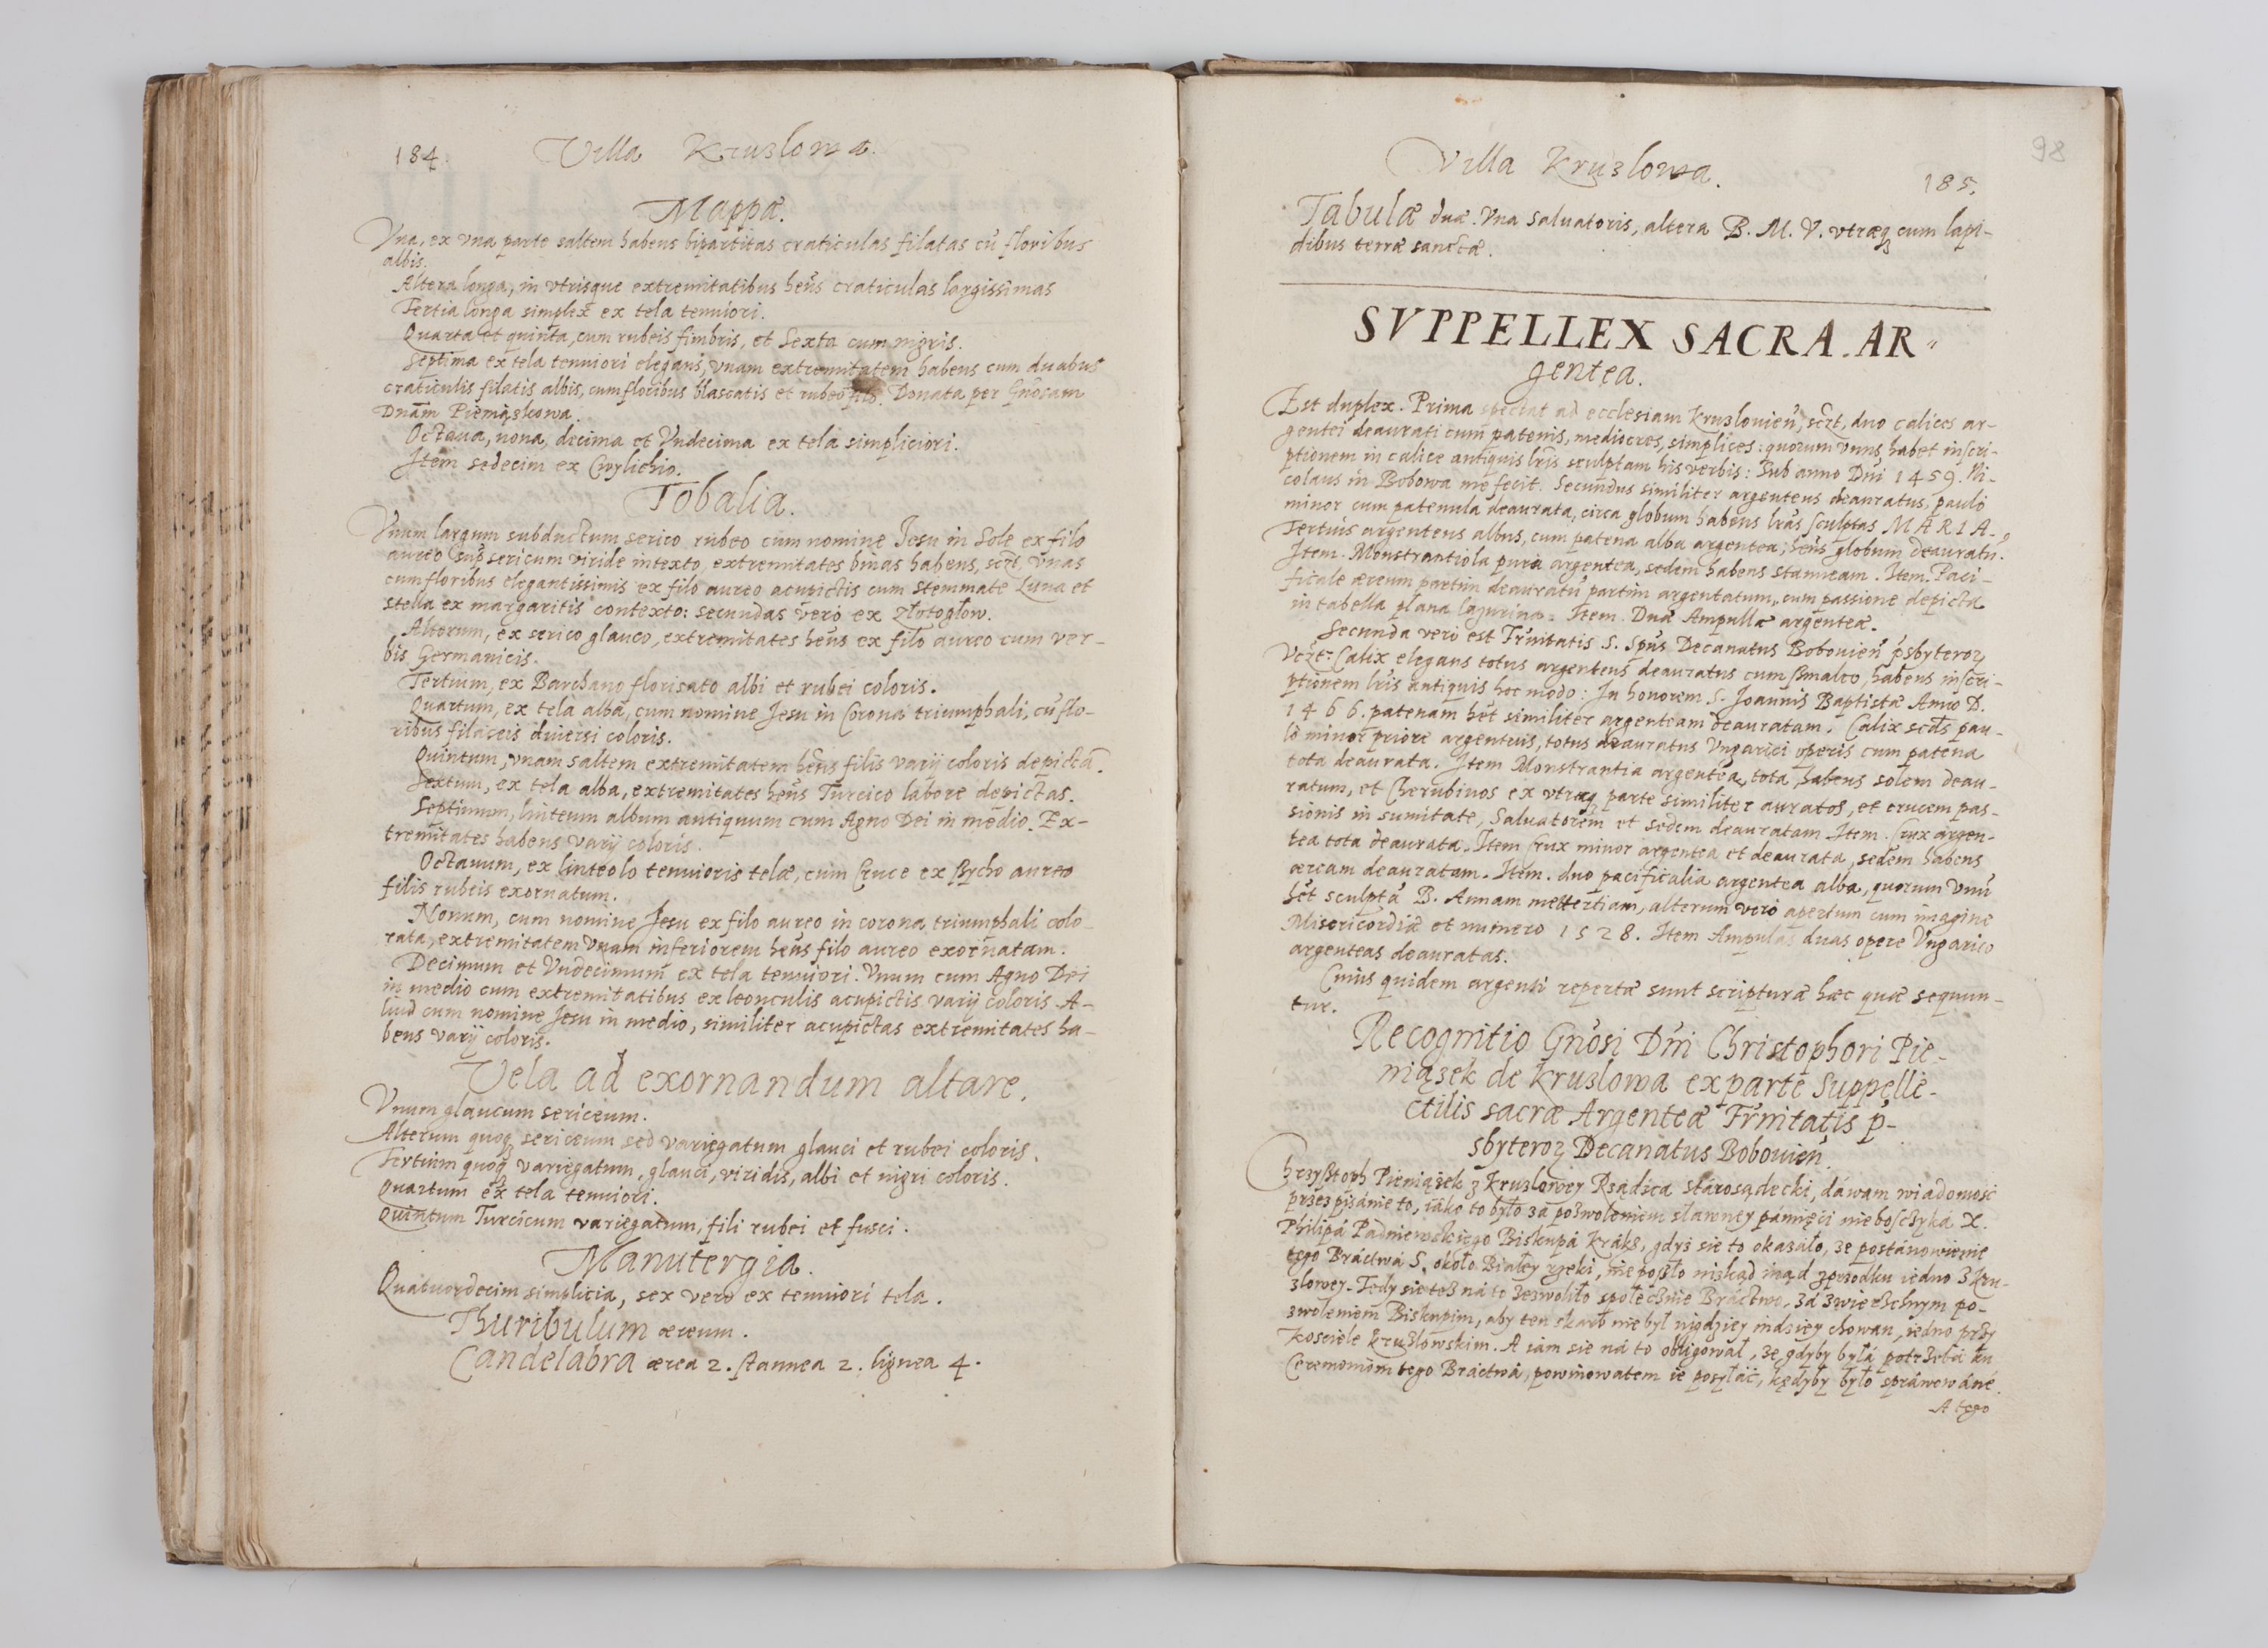 184
Villa Kruzlowa.
Mappæ.
Vna, ex vna parte saltem habens bipartitas craticulas filatas cũ floribus
albis.
Altera longa, in vtrisque extremitatibus hēns craticulas largissimas
Tertia longa simplex ex tela tenuiori.
Quarta et quinta, cum rubeis fimbris, et Sexta cum nigris.
Septima ex tela tenuiori elegans, vnam extremitatem habens cum duabus
craticulis filatis albis, cum floribus blascatis et Donata per Gnõsam
Dnām Pieniąskowa.
Octaua, nona, decima et Vndecima ex tela simpliciori.
Item sedecim ex Cwylichio.
Tobalia.
Vnum largum subductum serico rubeo cum nomine Jesu in Sole ex filo
aureo sup sericum viride intexto, extremitates binas habens, sczt, vnas
cum floribus elegantissimis ex filo aureo acupictis cum stemmate Luna et
stella ex margaritis contexto: secundas verò ex złotogłow.
Alterum, ex serico glauco, extremitates hēns ex filo aureo cum ver-
bis Germanicis.
Tertium, ex Barchano florisato albi et rubei coloris.
Quartum, ex tela alba, cum nomine Jesu in Corona triumphali, cũ flo-
ribus filaceis diuersi coloris.
Quintum, vnam saltem extremitatem hēns filis varij coloris depictā.
Sextum, ex tela alba, extremitates hēns Turcico labore depictas.
Septimum, linteum album antiquum cum Agno Dei in medio. Ex-
tremitates habens varij coloris.
Octauum, ex linteolo tenuioris telæ, cum Cruce ex aureo
filis rubeis exornatum.
Nonum, cum nomine Jesu ex filo aureo in corona triumphali colo-
rata, extremitatem vnam inferiorem hēns filo aureo exornatam.
Decimum et Vndecimum ex tela tenuiori. Vnum cum Agno Dei
in medio cum extremitatibus ex leonculis acupictis varij coloris. A-
liud cum nomine Jesu in medio, similiter acupictas extremitates ha-
bens varij coloris.
Vela ad exornandum altare.
Vnum glaucum sericeum.
Alterum quoqȝ sericeum sed variegatum glauci et rubei coloris.
Tertium quoqȝ variegatum, glauci, viridis, albi et nigri coloris.
Quartum ex tela tenuiori.
Quintum Turcicum variegatum, fili rubei et fusci.
Manutergia.
Quatuordecim simplicia, sex vero ex tenuiori tela.
Thuribulum æreum.
Candelabra ærea 2. stannea 2. lignea 4.
98
Villa Kruzlowa.
185.
Tabulæ duæ. Vna Saluatoris, altera B. M. V. vtræqȝ cum lapi-
dibus terræ sanctæ.
SVPPELLEX SACRA. AR-
gentea.
Est duplex. Prima spectat ad ecclesiam Kruzlouień, sczt, duo calices ar-
gentei deaurati cum patenis, mediocres, simplices: quorum vnus habet inscri-
ptionem in calice antiquis lrīs sculptam his verbis: Sub anno Dni 1459. Ni-
colaus in Bobowa me fecit. Secundus similiter argenteus deauratus, paulò
minor cum patenula deaurata, circa globum habens lrās sculptas MARIA.
Tertius argenteus albus, cum patena alba argentea, hēns globum deauratũ.
Item. Monstrantiola pura argentea, sedem habens stanneam. Item. Paci-
ficale æreum partim deauratũ partim argentatum, cum passione depicta
in tabella plana lazurina. Item. Duæ Ampullæ argenteæ.
Secunda verò est Frňitatis S. Spũs Decanatus Bobouień psbyteroꝝ
Vczt. Calix elegans totus argenteus deauratus cum smalco, habens inscri-
ptionem lrīs antiquis hoc modo: In honorem S. Joannis Baptistæ Anno D.
1466. patenam hēt similiter argenteam deauratam. Calix scds pau-
lò minor priore argenteus, totus deauratus Vngarici operis cum patena
tota deaurata. Item Monstrantia argentea, tota, habens solem deau-
ratum, et Cherubinos ex vtraqȝ parte similiter auratos, et crucem pas-
sionis in sumitate, Saluatorem et sedem deauratam. Item. Crux argen-
tea tota deaurata. Item Crux minor argentea et deaurata, sedem habens
æream deauratam. Item. duo pacificalia argentea alba, quorum vnũ
hēt sculptā B. Annam mettertiam, alterum verò apertum cum imagine
Misericordiæ et numero 1528. Item Ampulas duas opere Vngarico
argenteas deauratas.
Cuius quidem argenti repertæ sunt scripturæ hæc quæ sequun-
tur.
Recognitio Gnõsi Dni Christophori Pie-
niązek de Kruzlowa ex parte Suppelle-
ctilis sacræ Argenteæ Frnitatis p-
sbyteroꝝ Decanatus Bobouień.
Chrzyßtoph Pieniążek z Kruzlowey Rządźca stárosądecki, dáwam wiadomość
przez pisánie to, iáko to było zá pozwoleniem sławney pámięci nieboszczyká X.
Philipá Padniewskiego Biskupá Krák̃, gdyż sie to okazáło, że postánowienie
tego Bráctwá S. około Białey rzeki, nie poszło niskąd inąd zprzodku iedno z Kru-
zlowey. Tedy sie też ná to zezwoliło społecznie Bráctwo, zá zwierzchnym po-
zwoleniem Biskupim, aby ten skarb nie był nigdziey indziey chowan, iedno przy
Kosciele Kruzlowskim. A iam sie ná to obligował, że gdyby byłá potrzebá ku
Ceremoniom tego Bráctwá, powinowatem ie posyłáć, kędyby było spráwowáné.
A tego